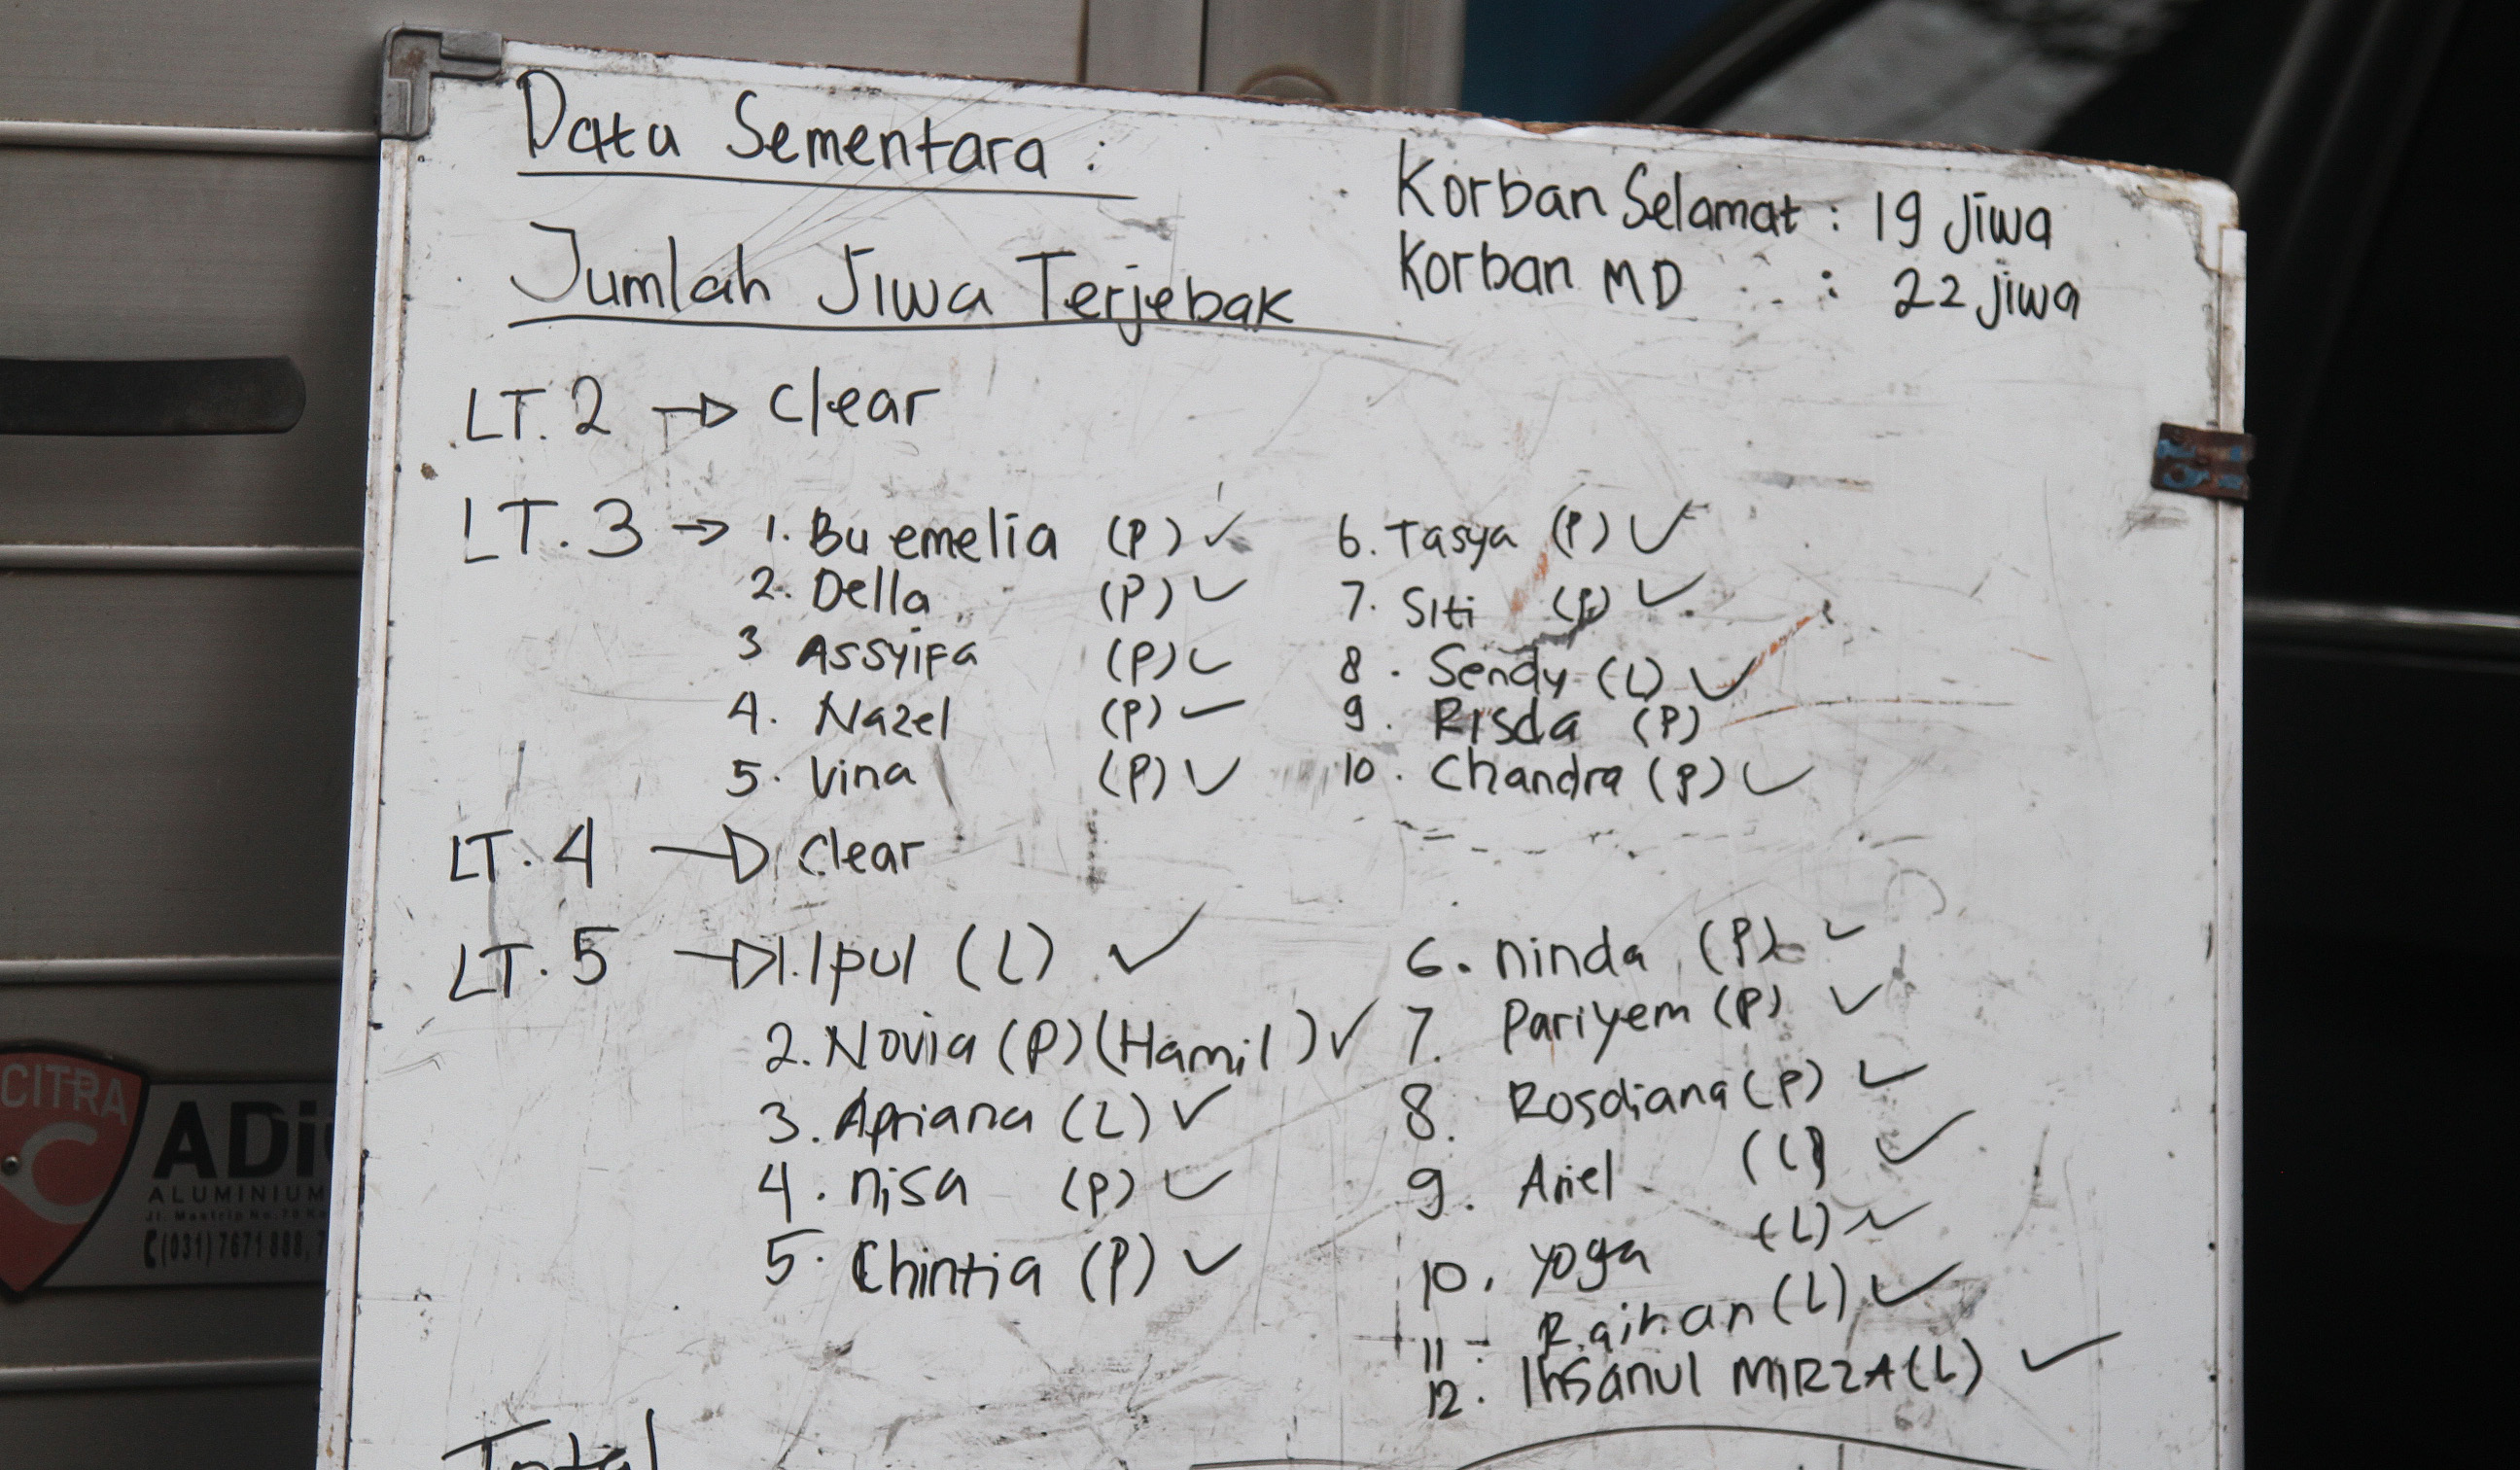 Data Sementara :
Jumlah Jiwa Terjebak
Korban Selamat : 19 Jiwa
Korban MD : 22 jiwa
LT. 2 → Clear
LT. 3 → 1. Bu emelia (P) ✓
2. Della (P) ✓
3 Assyifa (P) ✓
4. Nazel (P) ✓
5. Vina (P) ✓
6. Tasya (P) ✓
7. Siti (P) ✓
8. Sendy (L) ✓
9. Risda (P)
10. Chandra (P) ✓
LT. 4 → Clear
LT. 5 → 1. Ipul (L) ✓
2. Novia (P) (Hamil) ✓
3. Apriana (L) ✓
4. nisa (P) ✓
5. Chintia (P) ✓
6. ninda (P) ✓
7. Pariyem (P) ✓
8. Rosdiana (P) ✓
9. Ariel (L) ✓
10. yoga (L) ✓
11. Raihan (L) ✓
12. Ihsanul MIRZA (L) ✓
Total
CITRA
C
ADi
ALUMINIUM
(031) 7671 888, 7